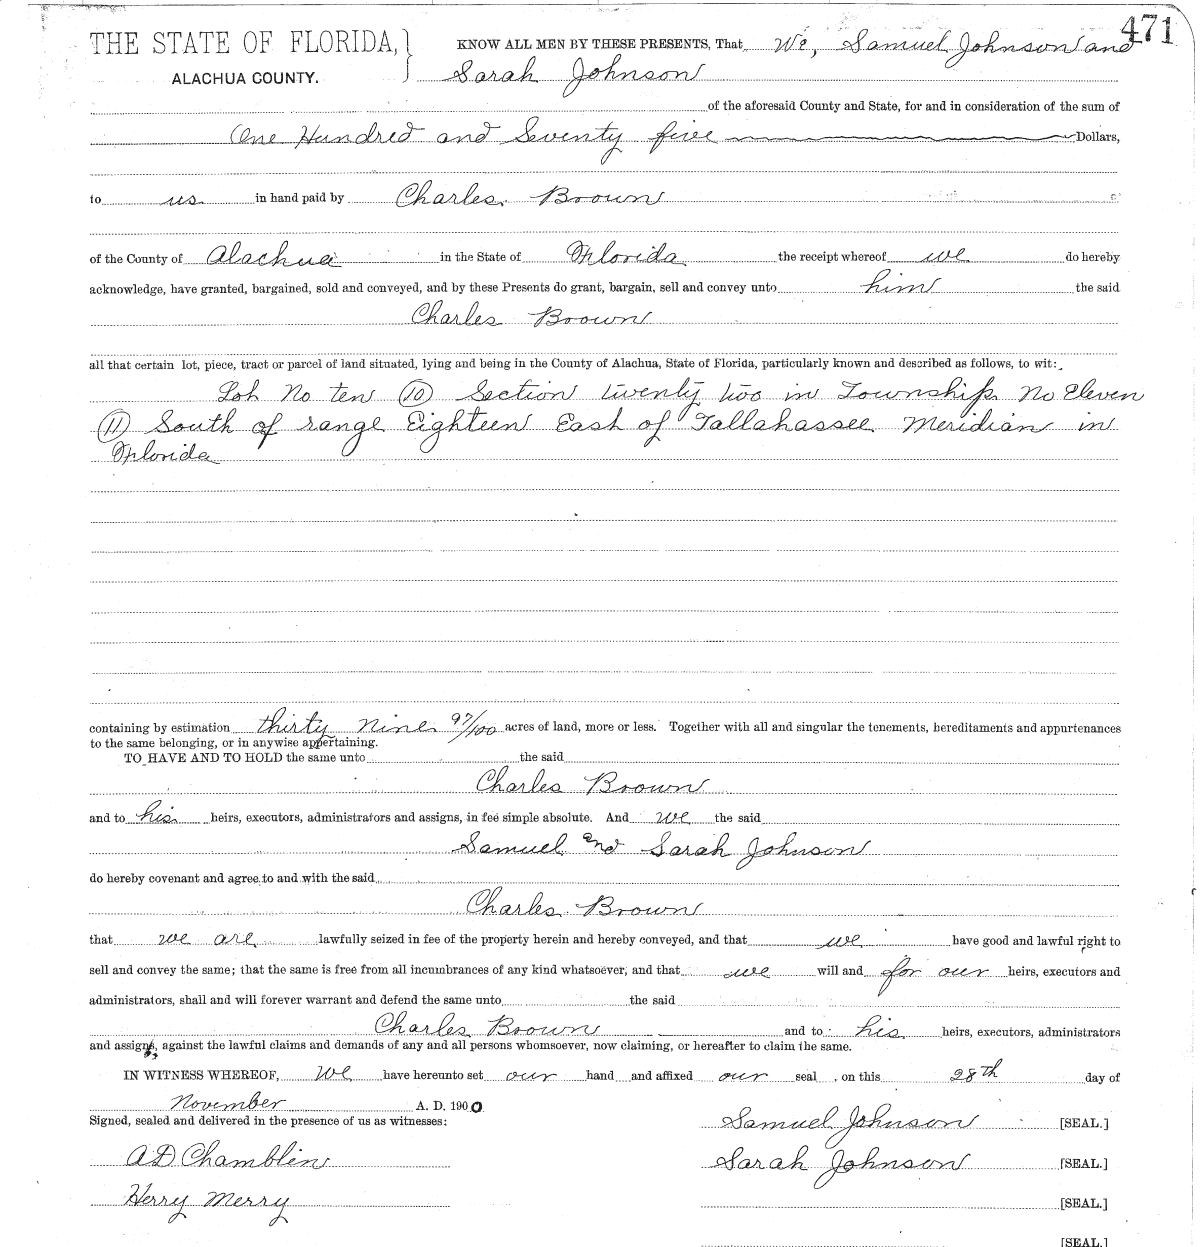 471
THE STATE OF FLORIDA, } KNOW ALL MEN BY THESE PRESENTS, That We, Samuel Johnson and
ALACHUA COUNTY. Sarah Johnson
of the aforesaid County and State, for and in consideration of the sum of
One Hundred and Seventy five Dollars,
to us in hand paid by Charles Brown
of the County of Alachua in the State of Florida the receipt whereof we do hereby
acknowledge, have granted, bargained, sold and conveyed, and by these Presents do grant, bargain, sell and convey unto him the said
Charles Brown
all that certain lot, piece, tract or parcel of land situated, lying and being in the County of Alachua, State of Florida, particularly known and described as follows, to wit:
Lot No ten (10) Section twenty two in Township No Eleven
(11) South of range Eighteen East of Tallahassee Meridian in
Florida
containing by estimation thirty nine 97/100 acres of land, more or less. Together with all and singular the tenements, hereditaments and appurtenances
to the same belonging, or in anywise appertaining.
TO HAVE AND TO HOLD the same unto the said
Charles Brown
and to his heirs, executors, administrators and assigns, in fee simple absolute. And we the said
Samuel and Sarah Johnson
do hereby covenant and agree to and with the said
Charles Brown
that we are lawfully seized in fee of the property herein and hereby conveyed, and that we have good and lawful right to
sell and convey the same; that the same is free from all incumbrances of any kind whatsoever, and that we will and for our heirs, executors and
administrators, shall and will forever warrant and defend the same unto the said
Charles Brown and to his heirs, executors, administrators
and assigns, against the lawful claims and demands of any and all persons whomsoever, now claiming, or hereafter to claim the same.
IN WITNESS WHEREOF, We have hereunto set our hand and affixed our seal, on this 28th day of
November A. D. 1900
Signed, sealed and delivered in the presence of us as witnesses: Samuel Johnson [SEAL.]
A D Chamblin Sarah Johnson [SEAL.]
Herry Merry [SEAL.]
[SEAL.]